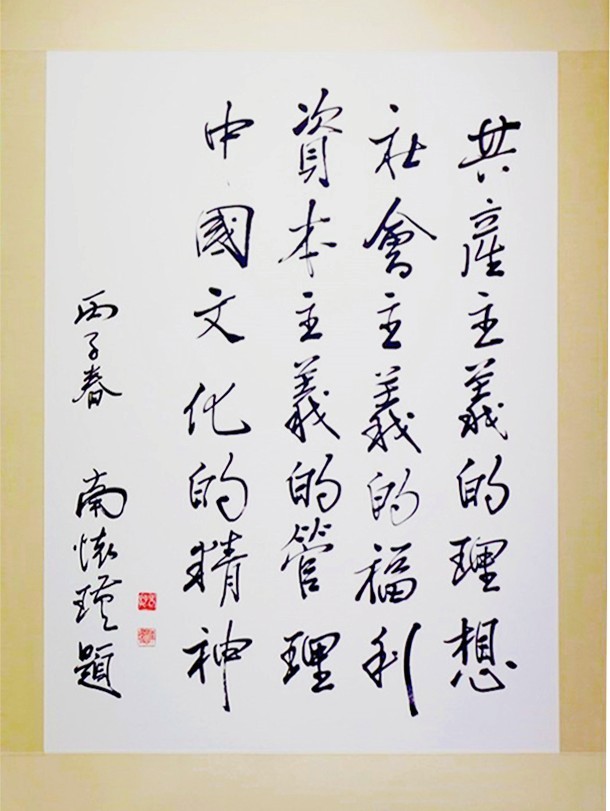 共產主義的理想
社會主義的福利
資本主義的管理
中國文化的精神
丙子春 南懷瑾題